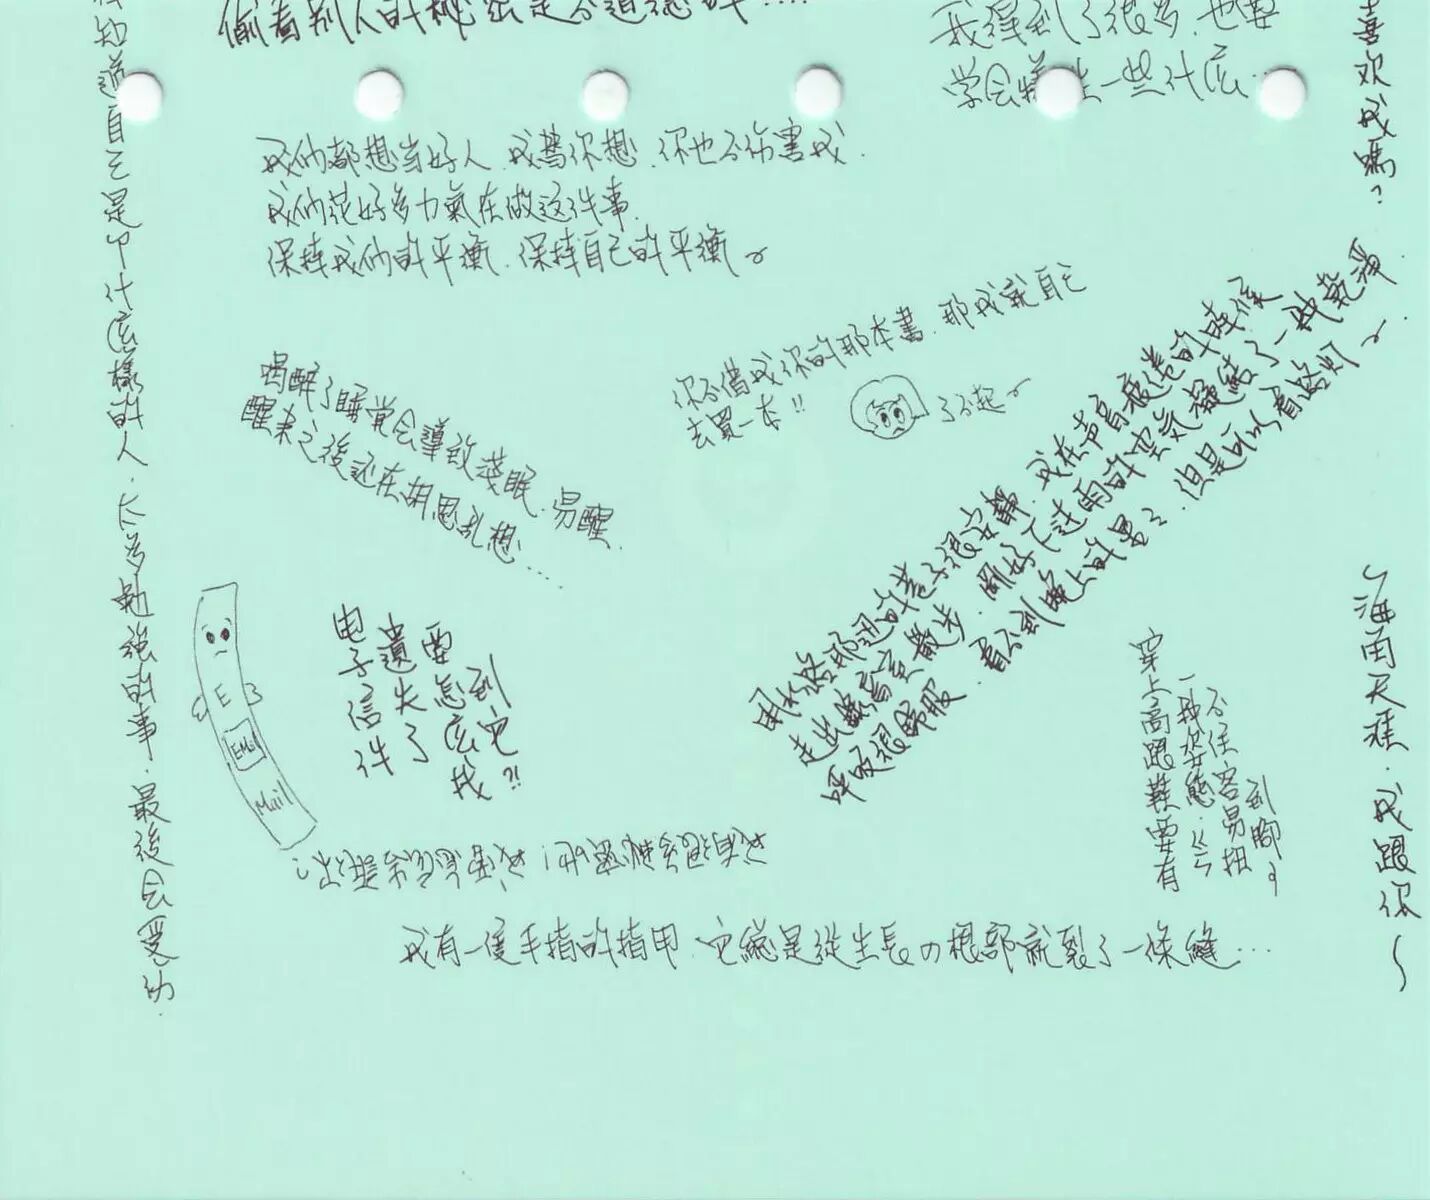 偷看别人的秘密是不道德的....
我得到了很多.也要
学会牺牲一些什広..
喜欢我嗎?
知道自己是-个什広樣的人.太多勉强的事.最後会受伤.
我们都想当好人.我替你想.你也不伤害我.
我们花好多力氣在做这件事.
保持我们的平衡.保持自己的平衡。
喝醉了睡觉会導致淺眠.易醒.
醒来之後还在胡思乱想....
你不借我你的那本書.那我就自己
去買一本!!
了不起~
用水路那边的巷子很安静.我在声音疲倦的時候
走出錄音室散步.剛好下过雨的空気凝結了一种乾淨.
呼吸很舒服.看不到晚上的星星.但是可以看路灯~
电子信件
遺失了
要怎広找
到它?!
E
EMai
Mail
穿上高跟鞋要有
一种姿態.ㄍㄥ
不住容易扭
到腳。
~海角天涯.我跟你~
我有一隻手指的指甲.它總是從生長の根部就裂了一條縫...